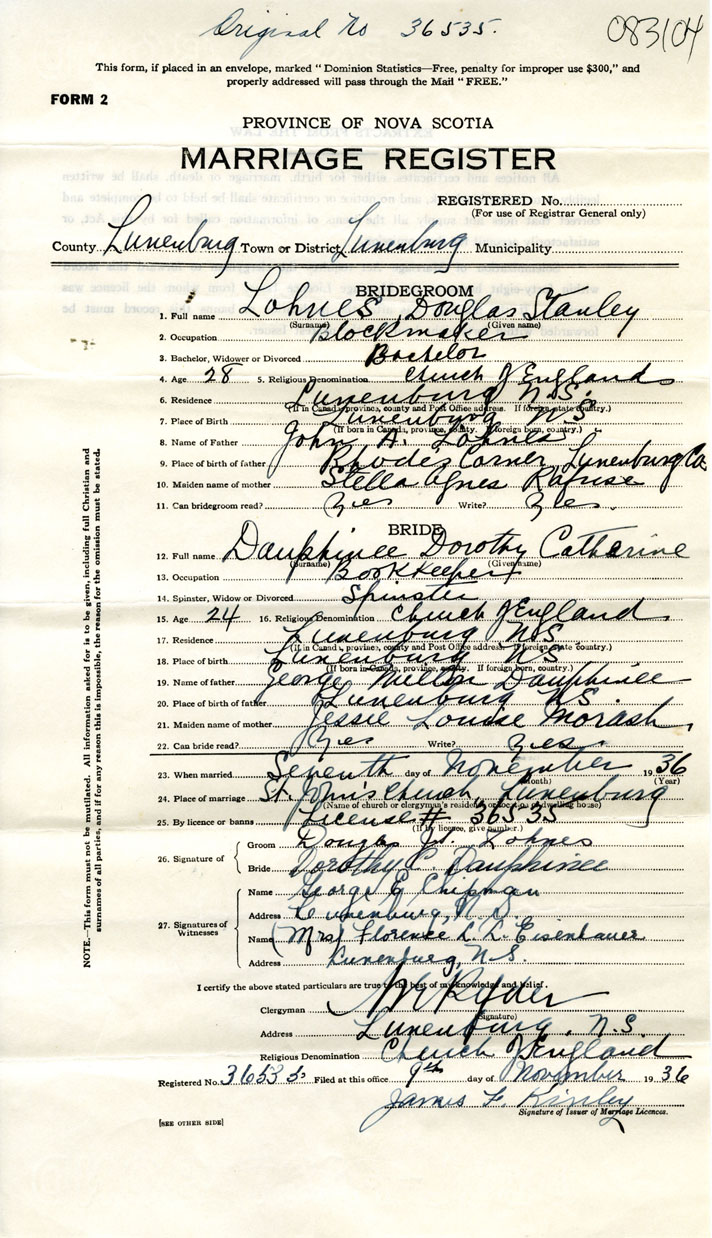 Original No 36535.
083104
This form, if placed in an envelope, marked "Dominion Statistics—Free, penalty for improper use $300," and
properly addressed will pass through the Mail "FREE."
FORM 2
PROVINCE OF NOVA SCOTIA
MARRIAGE REGISTER
REGISTERED No.
(For use of Registrar General only)
County Lunenburg Town or District Lunenburg Municipality
BRIDEGROOM
1. Full name Lohnes Douglas Stanley
(Surname) (Given name)
2. Occupation Blockmaker
3. Bachelor, Widower or Divorced Bachelor
4. Age 28 5. Religious Denomination Church of England
6. Residence Lunenburg N.S.
(If in Canada, province, county and Post Office address. If foreign, state country.)
7. Place of Birth Lunenburg N.S
(If born in Canada, province, county. If foreign born, country.)
8. Name of Father John A. Lohnes
9. Place of birth of father Rhodes Corner Lunenburg Co.
10. Maiden name of mother Stella Agnes Rafuse
11. Can bridegroom read? Yes Write? Yes.
BRIDE
12. Full name Dauphinee Dorothy Catharine
(Surname) (Given name)
13. Occupation Bookkeeper
14. Spinster, Widow or Divorced Spinster
15. Age 24 16. Religious Denomination Church of England
17. Residence Lunenburg N.S.
(If in Canada, province, county and Post Office address. If foreign, state country.)
18. Place of birth Lunenburg N.S.
(If born in Canada, province, county. If foreign born, country.)
19. Name of father George Milton Dauphinee
20. Place of birth of father Lunenburg N.S.
21. Maiden name of mother Jessie Louise Morash
22. Can bride read? Yes Write? Yes.
23. When married Seventh day of November 1936
(Month) (Year)
24. Place of marriage St. John's Church, Lunenburg
(Name of church or clergyman's residence or hotel or dwelling house)
25. By licence or banns License # 36535
(If by licence, give number.)
26. Signature of
Groom Douglas St. Lohnes
Bride Dorothy C. Dauphinee
27. Signatures of Witnesses
Name George E Chipman
Address Lunenburg, N.S.
Name (Mrs) Florence L. L. Eisenhauer
Address Lunenburg, N.S.
I certify the above stated particulars are true to the best of my knowledge and belief.
Clergyman Ryder
(Signature)
Address Lunenburg, N.S.
Religious Denomination Church of England
Registered No. 36535 Filed at this office 9th day of November 1936
James F. Kinley
Signature of Issuer of Marriage Licences.
[SEE OTHER SIDE]
NOTE.—This form must not be mutilated. All information asked for is to be given, including full Christian and
surnames of all parties, and if for any reason this is impossible, the reason for the omission must be stated.